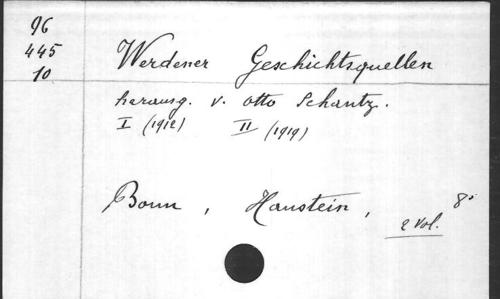 96
445
10
Werdener Geschichtsquellen
herausg. v. Otto Schantz.
I (1912) II (1919)
Bonn, Hanstein, 8°
2 Vol.